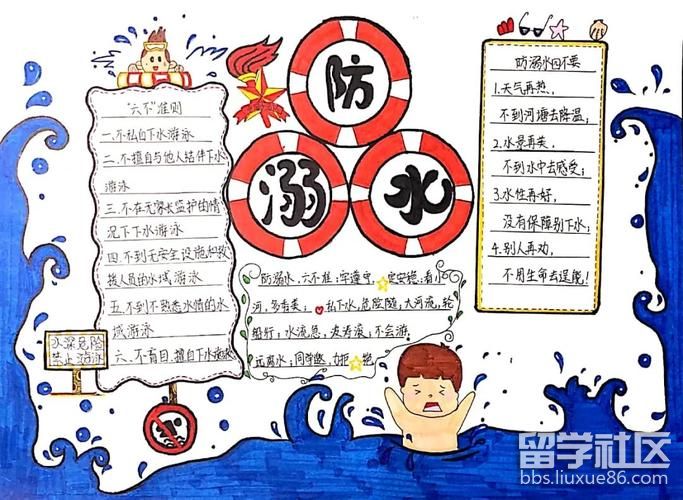 防
溺
水
"六不"准则
一.不私自下水游泳
二.不擅自与他人结伴下水
游泳
三.不在无家长监护的情
况下下水游泳
四.不到无安全设施和救
援人员的水域游泳
五.不到不熟悉水情的水
域游泳
六、不盲目、擅自下水施救
水深危险
禁止游泳
防溺水、六不准、牢遵守、定安稳,看小
河,多奇美;私下水,危险随,大河流,轮
船行;水流急,滚,不会游,
远离水;同学邀,力拒绝
防溺水四不要
1.天气再热,
不到河塘去降温;
2.水景再美,
不到水中去感受;
3.水性再好,
没有保障别下水;
4.别人再劝,
不用生命去逞能!
留学社区
bbs.liuxue86.com